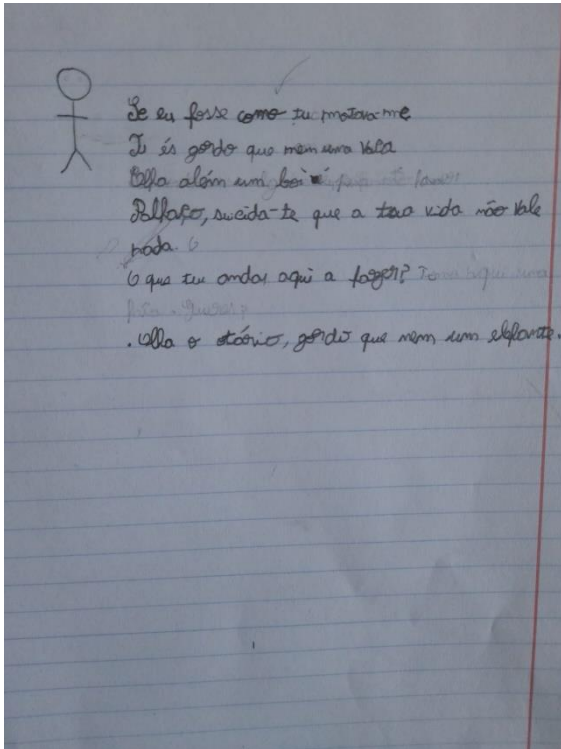 Se eu fosse como tu matava-me
Tu és gordo que nem uma vaca
Olha além um boi
Palhaço, suicida-te que a tua vida não vale
nada. O
O que tu andas aqui a fazer? Toma aqui uma
. Olha o otário, gordo que nem um elefante.